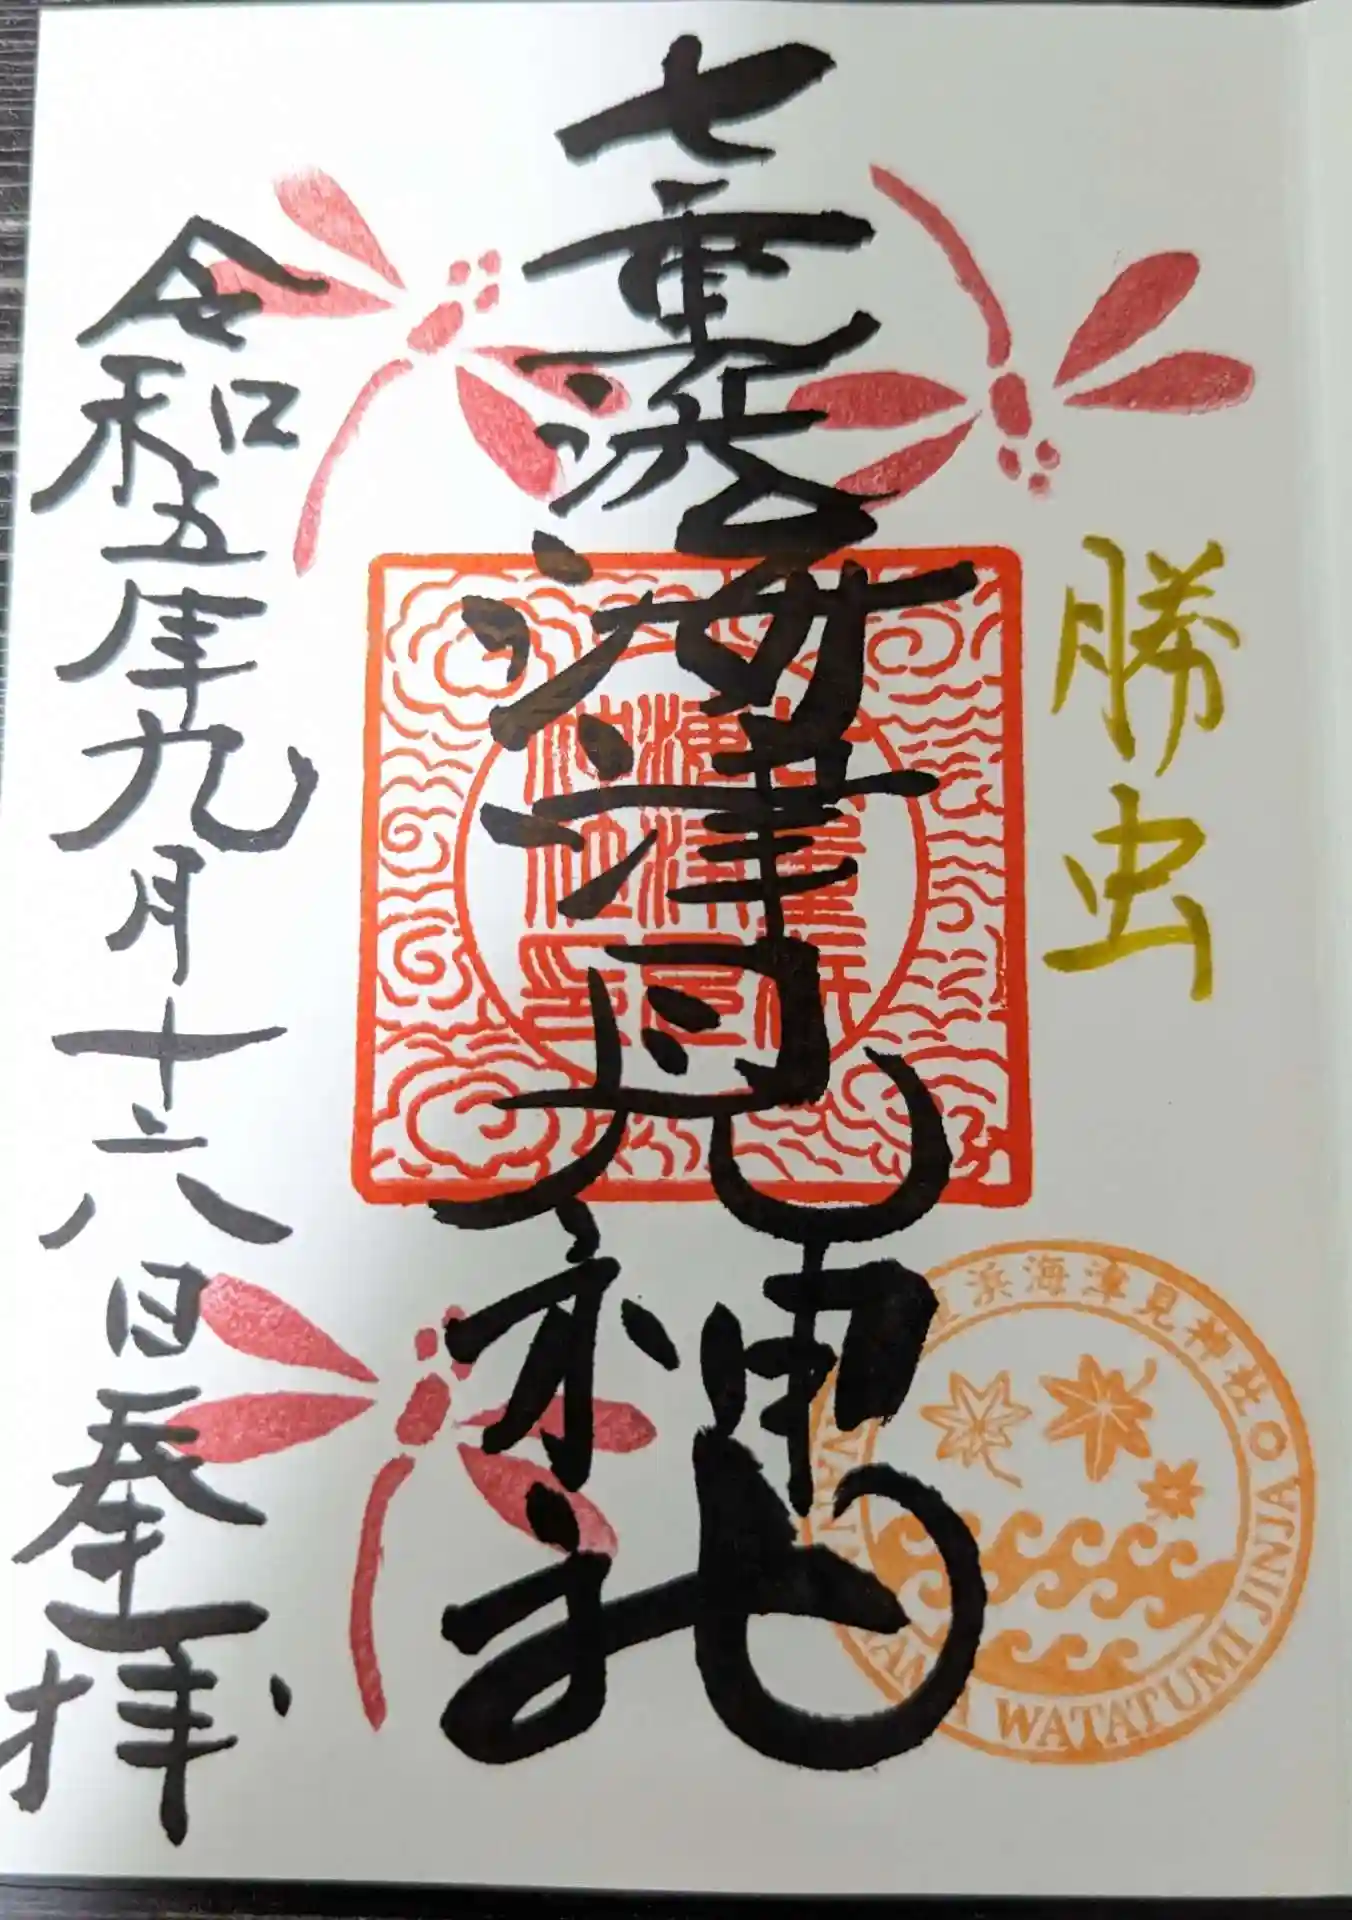 勝虫
七重浜海津見神社
令和五年九月十六日奉拝
重浜海津見神社
WATATUMI JINJA